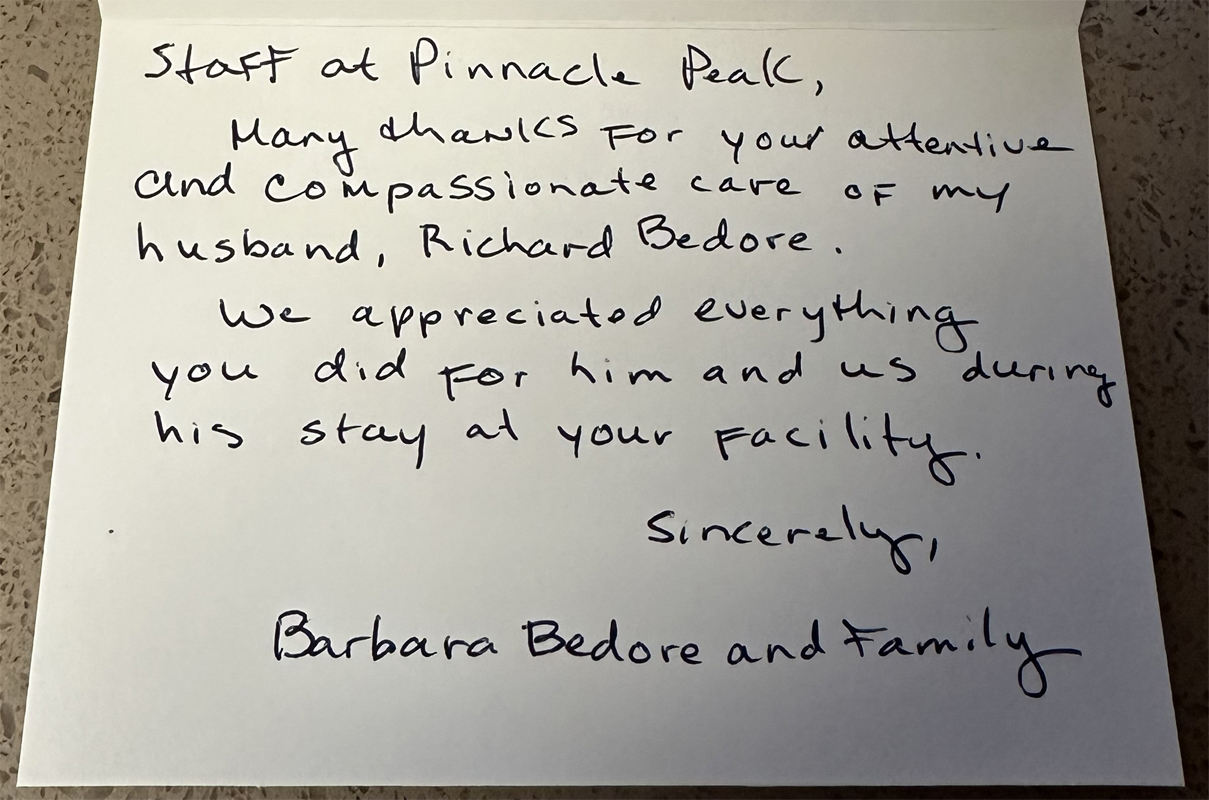 Staff at Pinnacle Peak,
Many thanks for your attentive
and compassionate care of my
husband, Richard Bedore.
We appreciated everything
you did for him and us during
his stay at your facility.
Sincerely,
Barbara Bedore and Family